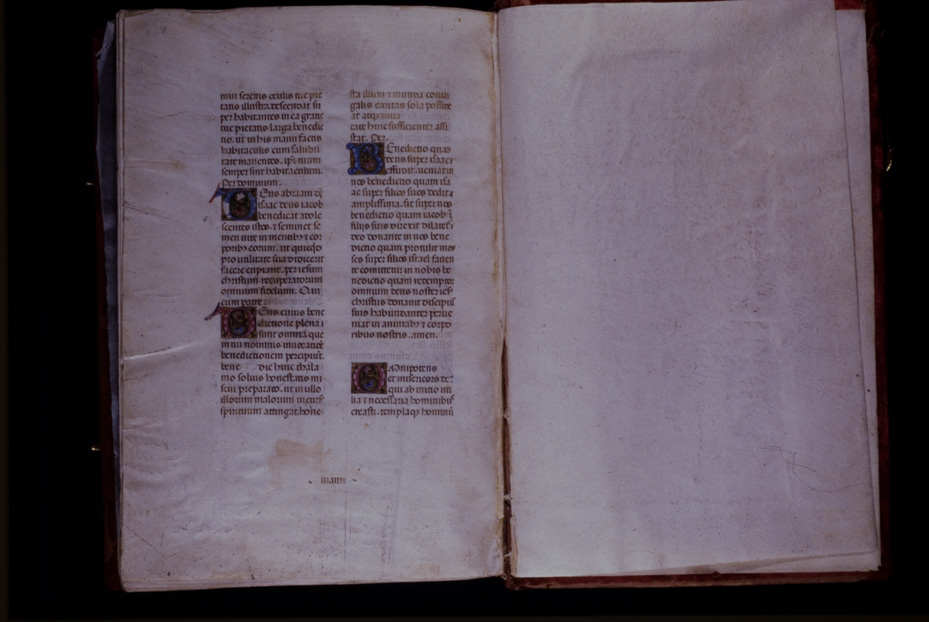 mur serenis oculis tue pie
tatis illustra. descendat su
per habitantes in ea gratie
tue pietatis larga benedic
tio. ut in his manu factis
habitaculis cum salubri
tate manentes. ipsi tuum
semper sint habitaculum.
Per dominum.
Deus abraam de
ysaac deus iacob
benedicat adole
scentes istos. ⁊ seminet se
men uite in mentibꝫ ⁊ cor
poribꝫ eorum. ut quicqd
pro utilitate sua didicerit
facere cupiant. per iesum
christum recuperatorum
omnium fidelium. Qui
cum patre
Deus cuius bene
dictione plena
sunt omnia que
in tui nominis inuocance
benedictionem percipiut.
bene dic huic thala
mo solius honestatis mi
seni preparato. ut in illo
illorum malorum incurs
spirituum attingat. hone
sta illum ⁊ munda coniu
galis caritas sola possite
at atqz
tate huic sufficienter assi
stat. Per.
Benedictio quas
deus super ysaac
effudit. ueniat in
nos benedictio quam isa
ac super filios suos dedit
amplissima. sit super nos
benedictio quam iacob
filiis suis direxit dilatet
deo donante in nos bene
dictio quam protulit moy
ses super filios israel fauen
te comitetur in nobis be
nedictio quam redemptor
omnium deus noster ies
christus donauit discipul
suis habundanter perue
niat in animabꝫ ⁊ corpo
ribus nostris. amen.
Omnipotens
et misericors ds
qui ab initio uti
lia ⁊ necessaria hominibus
creasti. templaqz hominu
manu